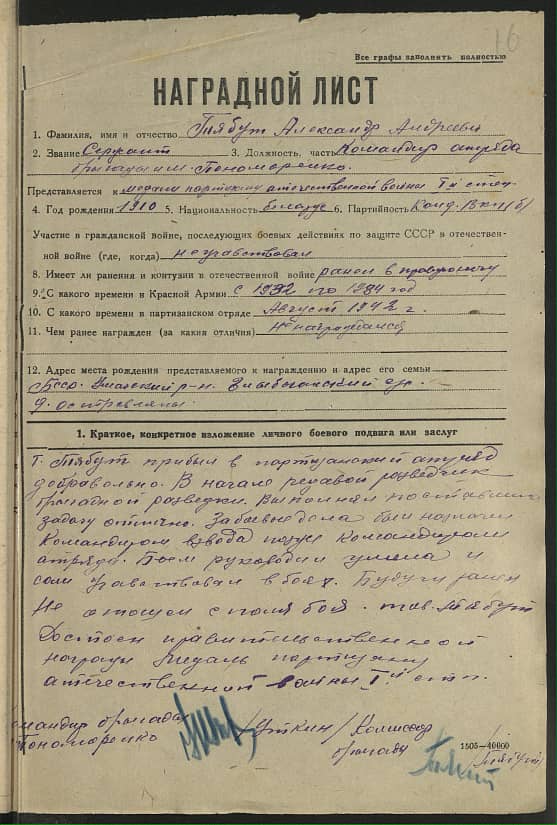 16
Все графы заполнять полностью
НАГРАДНОЙ ЛИСТ
1. Фамилия, имя и отчество Тябут Александр Андреевич
2. Звание Сержант 3. Должность, часть Командир отряда
бригады им. Пономоренко.
Представляется к медали партизану отечественной войны I й степ.
4. Год рождения 1910 5. Национальность белорус 6. Партийность Канд. Вкп(б)
Участие в гражданской войне, последующих боевых действиях по защите СССР в отечествен-
ной войне (где, когда) не участвовал
8. Имеет ли ранения и контузии в отечественной войне ранен в
9. С какого времени в Красной Армии с 1932 по 1934 год
10. С какого времени в партизанском отряде Август 1942 г.
11. Чем ранее награжден (за какия отличия) Не награждался
12. Адрес места рождения представляемого к награждению и адрес его семьи
Бсср. р-н.
д.
1. Краткое, конкретное изложение личного боевого подвига или заслуг
Т. Тябут прибыл в партизанский отряд
добравольно. В начале рядавой разведчик
бригадной разведки. Выполнял поставлен
задачу отлично. За боевые дела был назначен
Командиром взвода позже Командиром
отряда. Боем руководил умела и
сам участвовал в боях. Будучи ранен
Не отошел с поля боя. тов. Тябут
Достоен правительственной
награды Медаль партизану
атечественной войны I й стп.
омандир бригады
Пономоренко /Уткин/ Комиссар
бригады
1505—40000